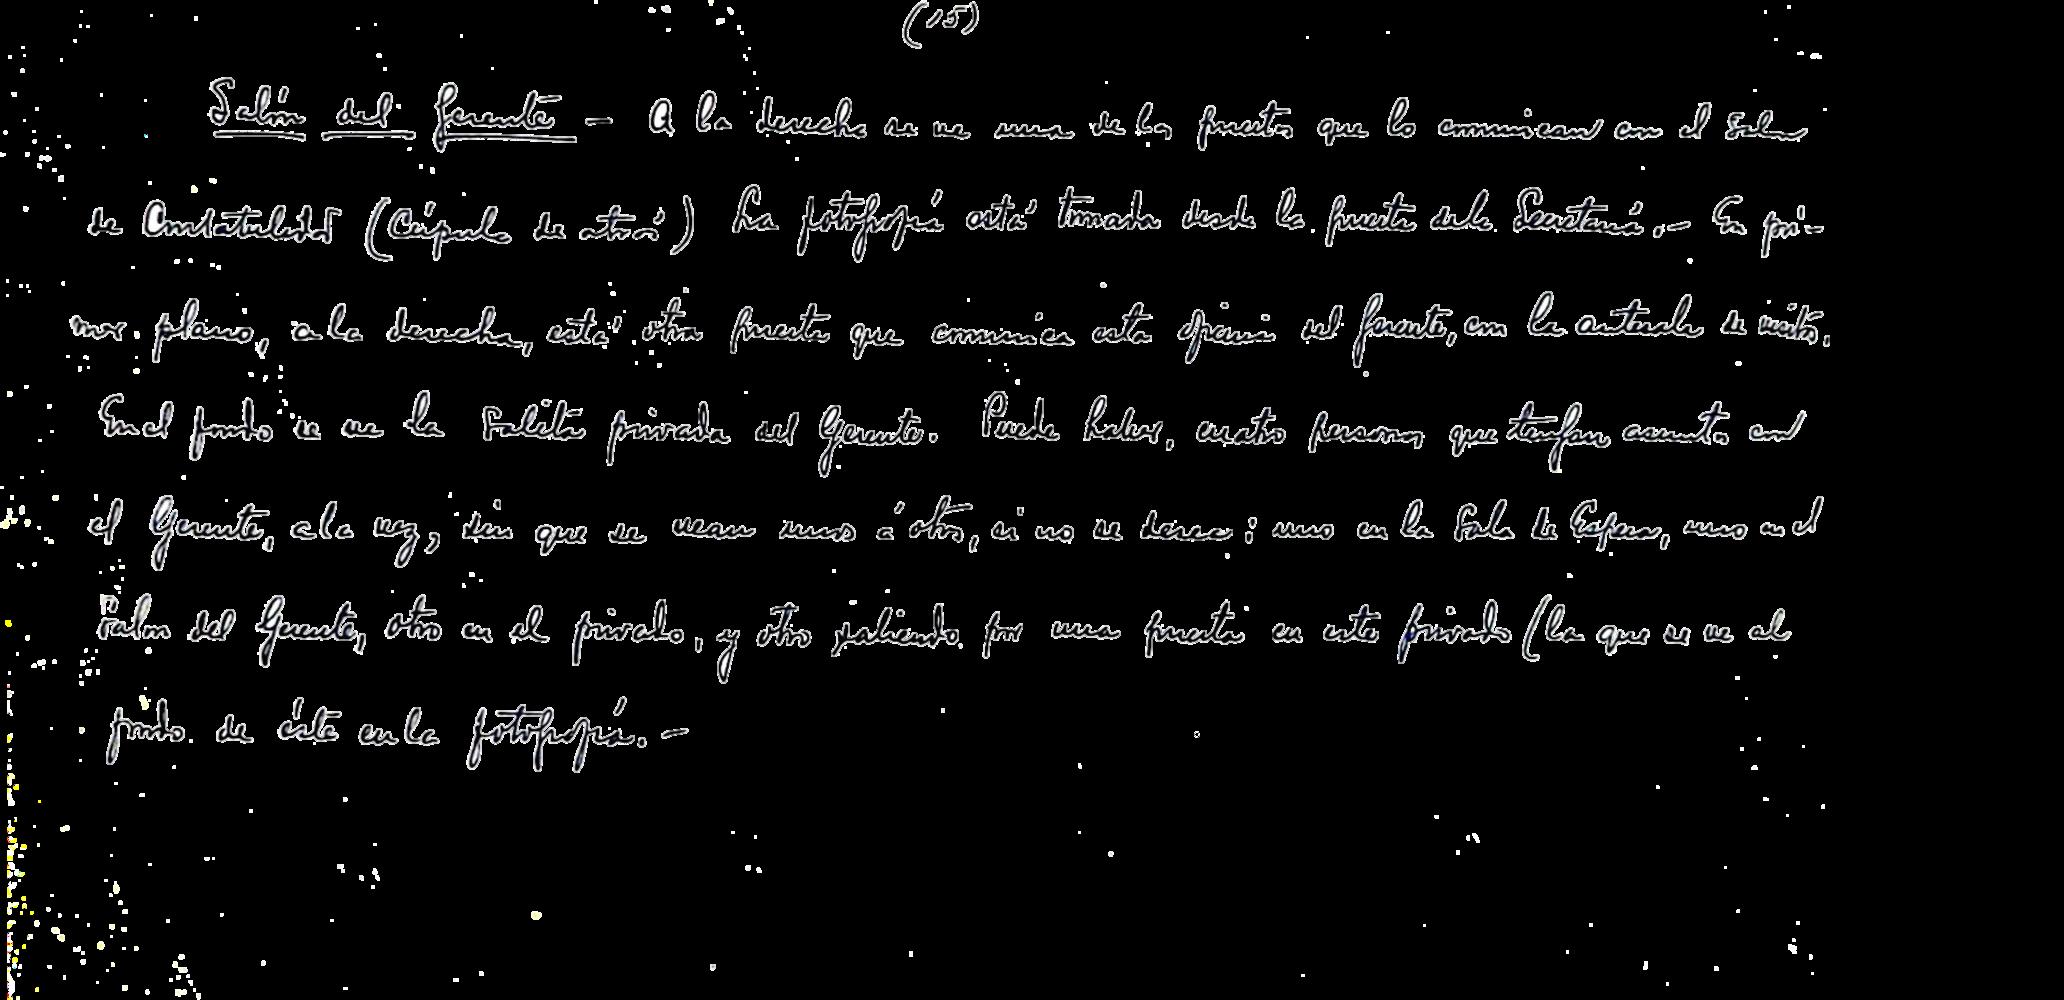 (15)
Salón del Gerente - A la derecha se ve una de las puertas que lo comunican con el Salon
de Contabilidad (Cúpula de atrás) La fotografía está tomada desde la puerta de la Secretaría.- En pri-
mer plano, a la derecha, está otra puerta que comunica esta oficina del Gerente, con la antesala de visitas.
En el fondo se ve la Salita privada del Gerente. Puede haber, cuatro personas que tengan asuntos con
el Gerente, a la vez, sin que se vean unos á otros, si no se desea: uno en la Sala de Espera, uno en el
Salon del Gerente, otro en el privado, y otro saliendo por una puerta en este privado (la que se ve al
fondo de éste en la fotografía.-